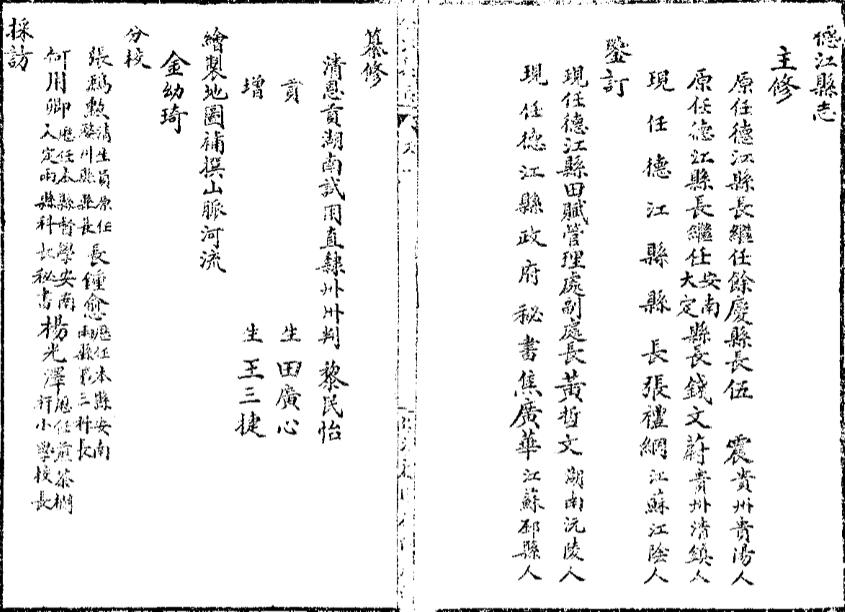 德江縣志
主修
原任德江縣長繼任餘慶縣長伍　震貴州貴陽人
原任德江縣長繼任安南大定縣長錢文蔚貴州清鎮人
現任德江縣縣長張禮綱江蘇江陰人
鑒訂
現任德江縣田賦管理處副處長黃哲文湖南沅陵人
現任德江縣政府秘書焦廣華江蘇邳縣人
纂修
清恩貢湖南試用直隸州州判黎民怡
貢生田廣心
增生王三捷
繪製地圖補撰山脈河流
金幼琦
分校
張鵡勲清生員原任婺川縣縣長　長鍾愈歷任本縣安南兩縣第三科長
何用卿歷任本縣督學安南定兩縣科長秘書楊光澤歷任煎茶棡行小學校長
採訪